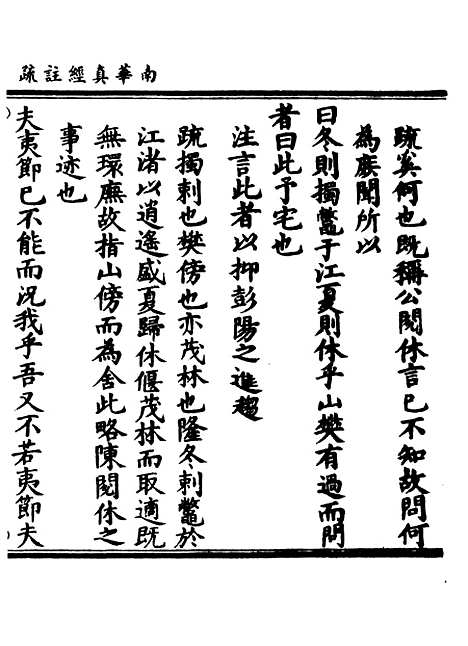 南華真經註疏
疏奚何也既稱公閱休言已不知故問何
為庶聞所以
曰冬則擉鼈于江夏則休乎山樊有過而問
者曰此予宅也
注言此者以抑彭陽之進趨
疏擉刺也樊傍也亦茂林也隆冬刺鼈於
江渚以逍遙盛夏歸休偃茂林而取適既
無環廡故指山傍而為舍此略陳閱休之
事迹也
夫夷節已不能而況我乎吾又不若夷節夫